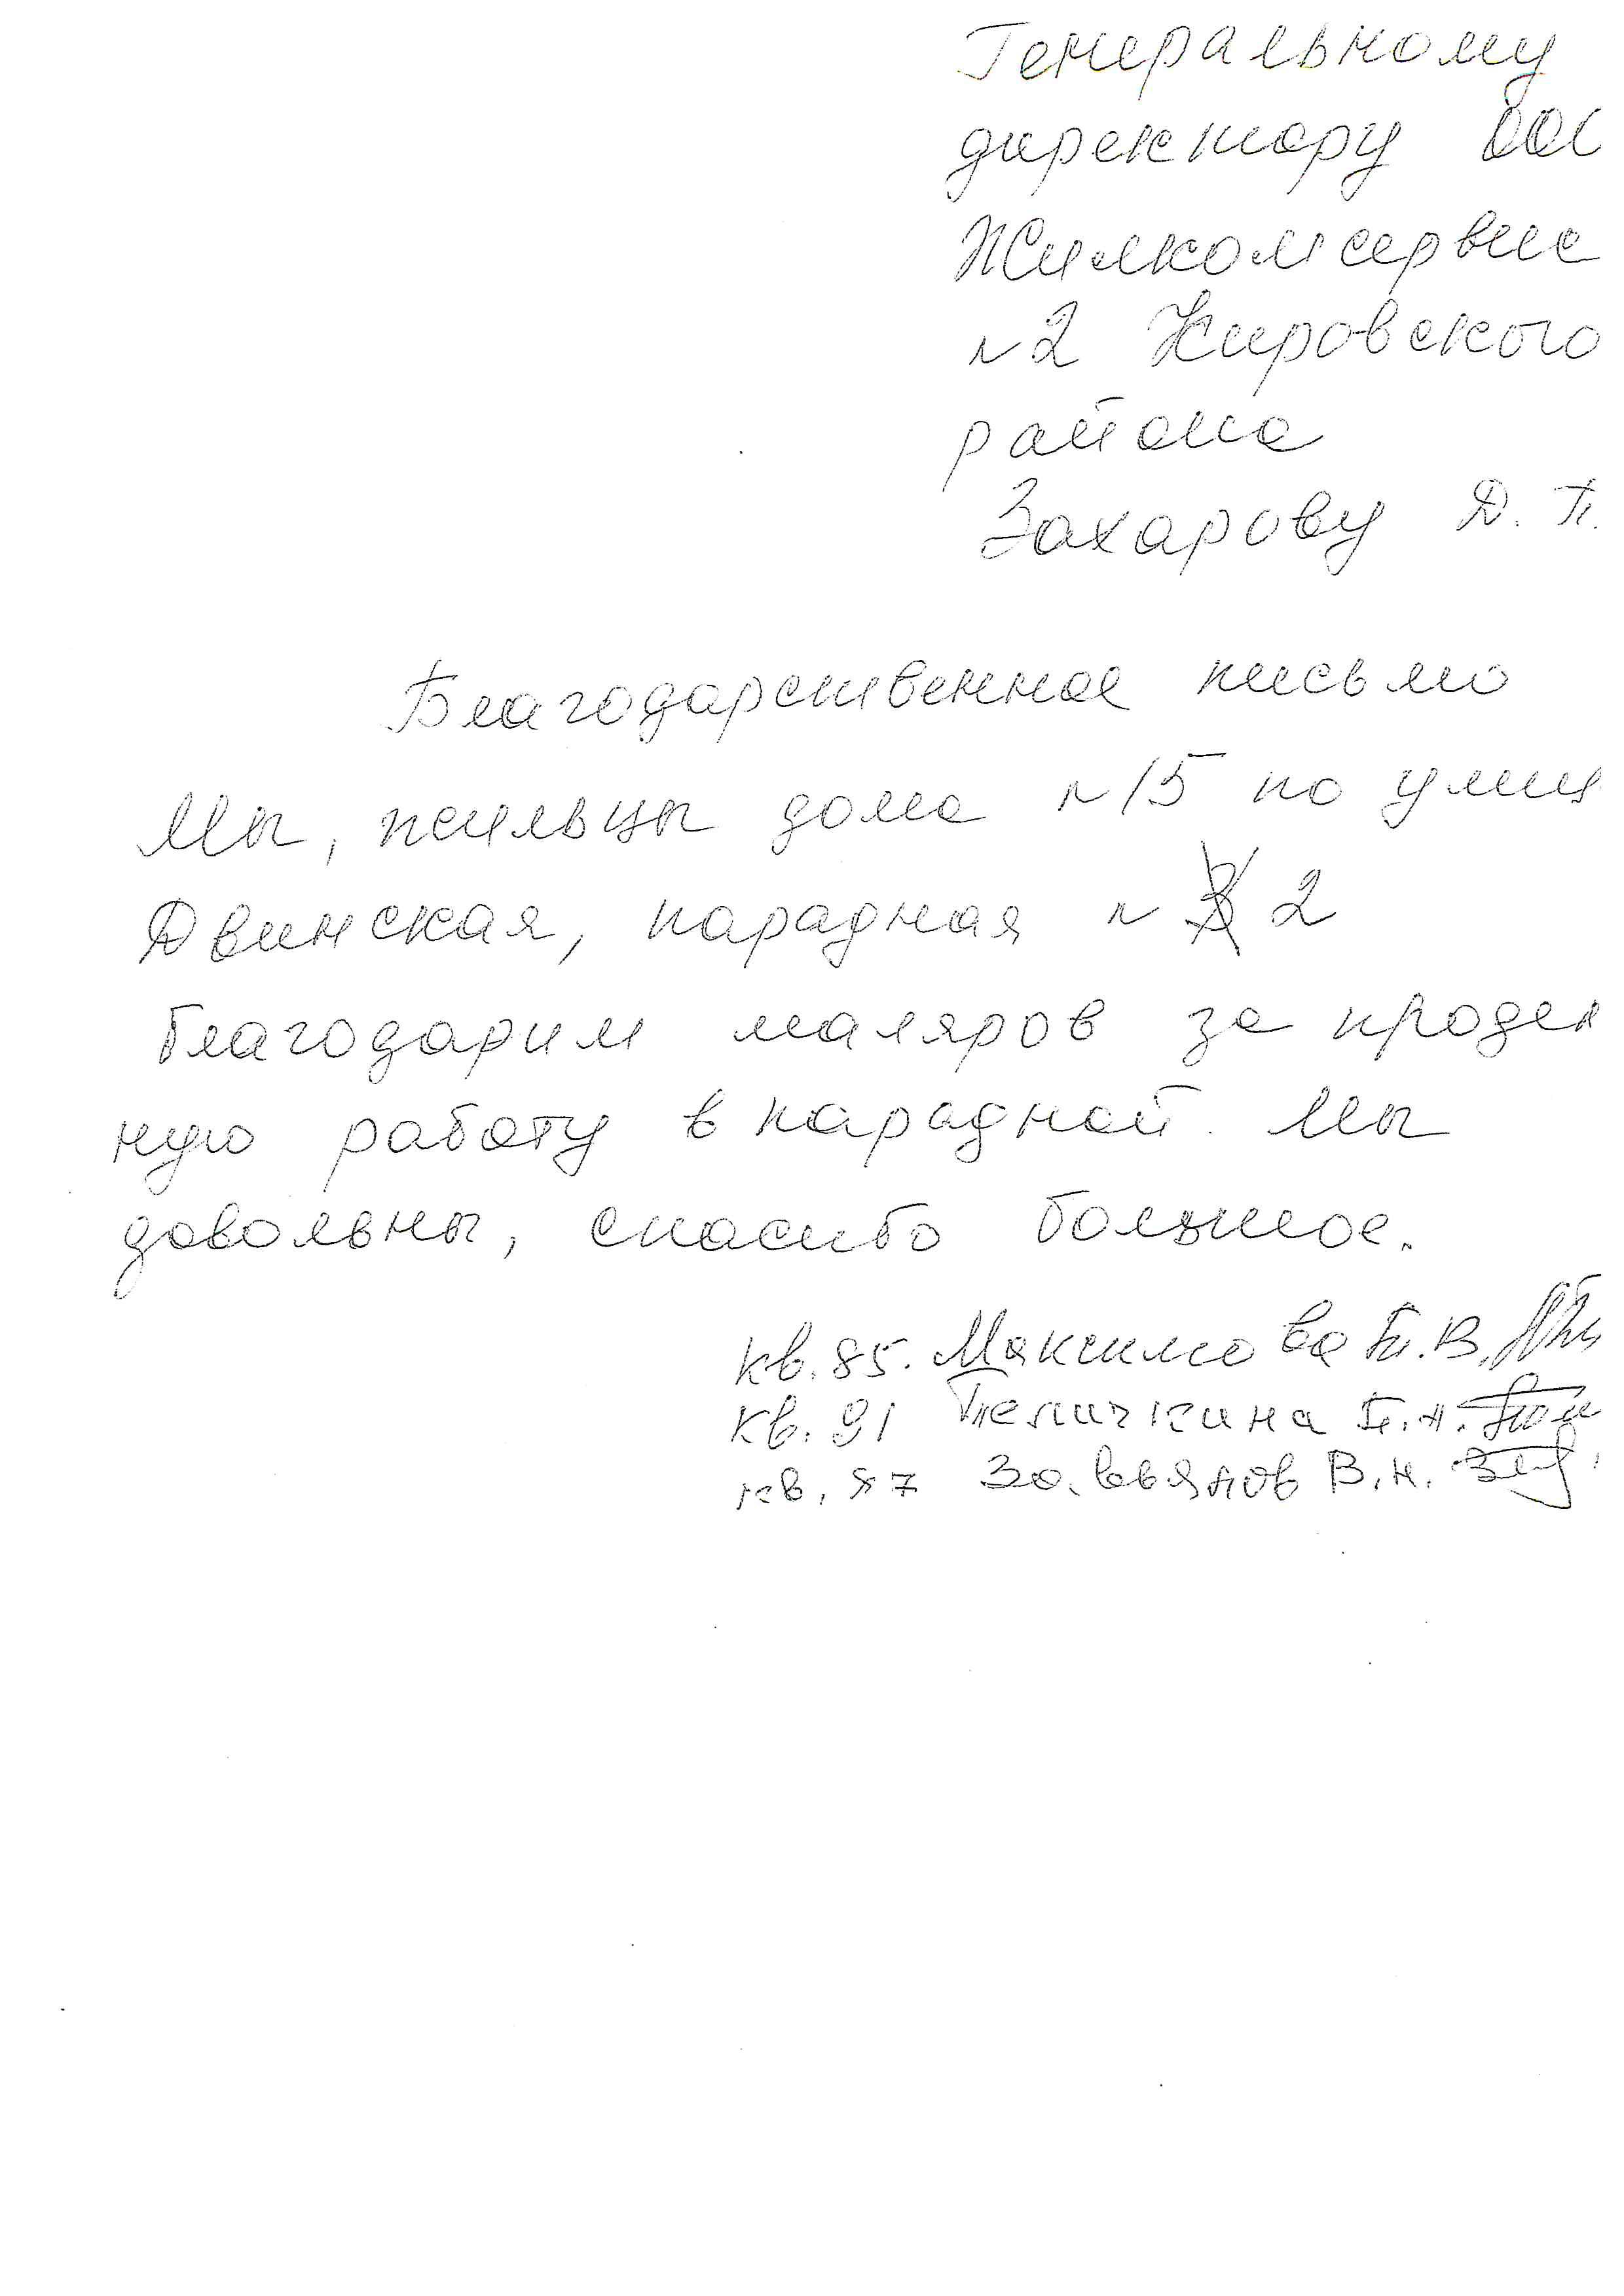 Генеральному
директору ООО
Жилкомсервис
№2 Кировского
района
Захарову Д. П.
Благодарственное письмо
Мы, жильцы дома №15 по улиц
Двинская, парадная № 2
благодарим маляров за продел
ную работу в парадной. Мы
довольны, спасибо большое.
кв. 85. Максимова Т. В.
кв. 91
кв. 87 В. Н.